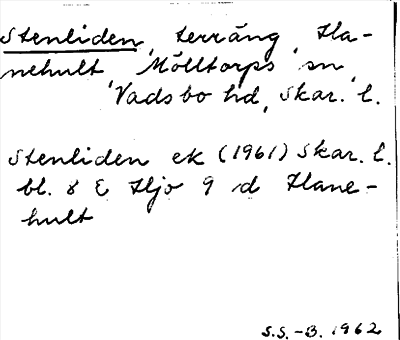 Stenliden, terräng, Ha-
nehult, Mölltorps sn,
Vadsbo hd, Skar. l.
Stenliden ek (1961) Skar. l.
bl. 8 E Hjo 9 d Hane-
hult
S.S.-B. 1962